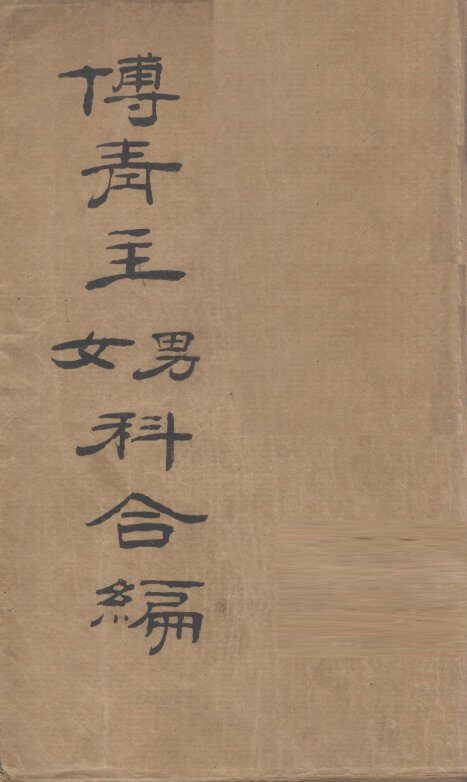 傅青主男女科合編